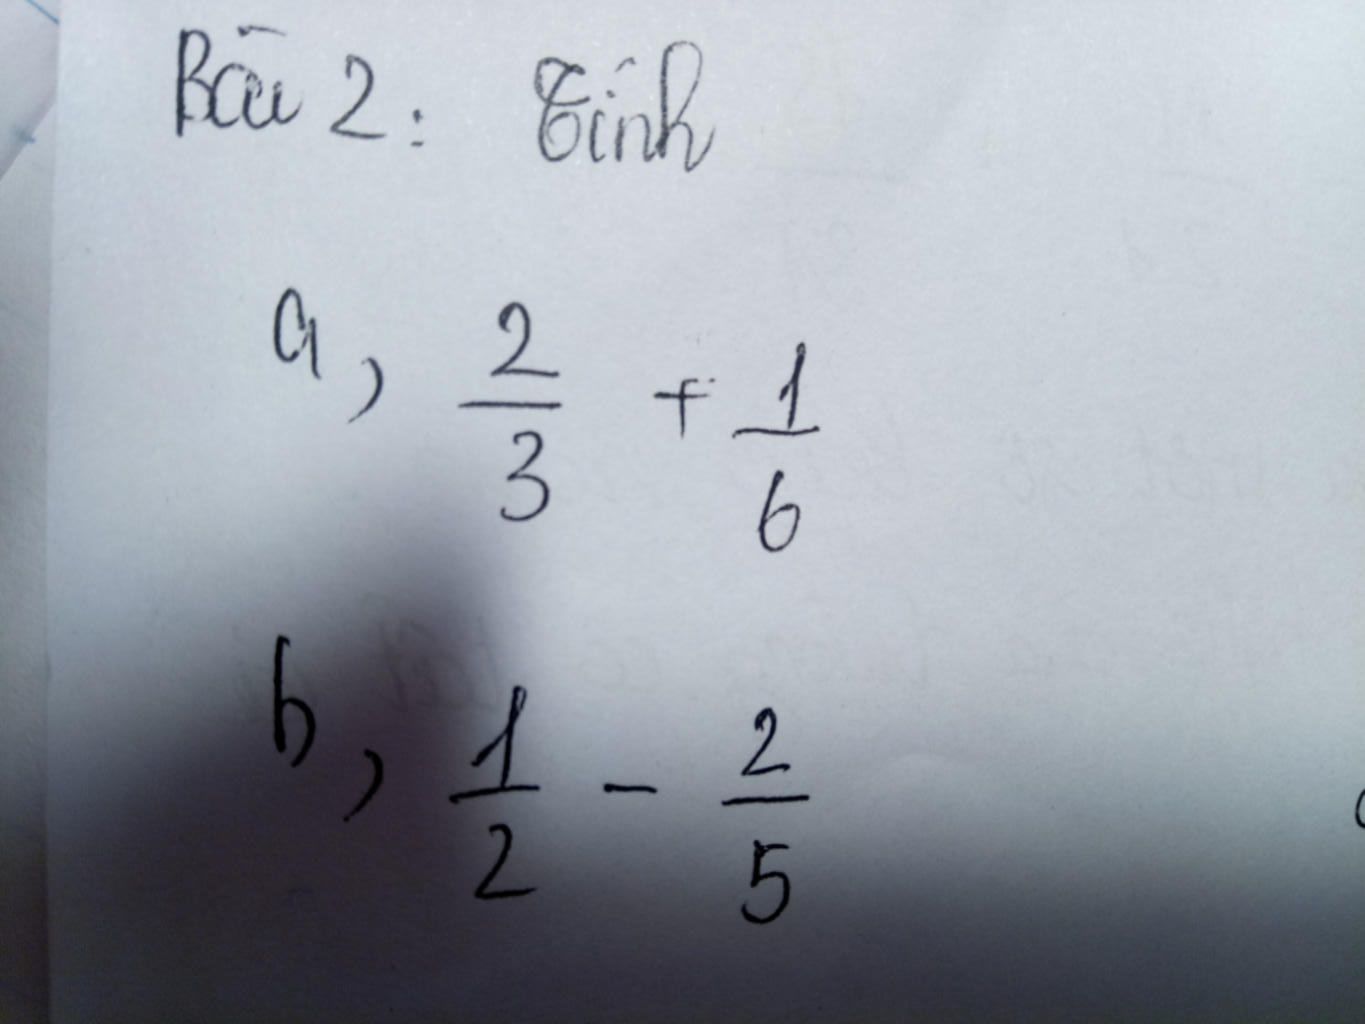 Bài 2: Tính
a, 2/3 + 1/6
b, 1/2 - 2/5